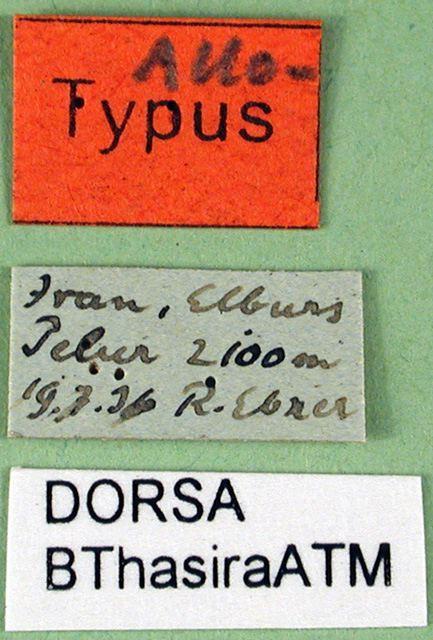 Allo-
Typus
Iran, Elburs
Pelur 2100 m
19.7.36 R. Ebner
DORSA
BThasiraATM